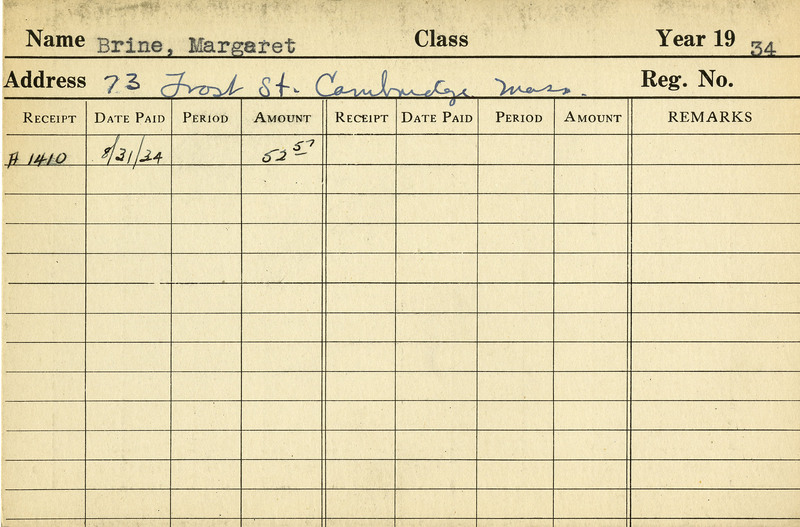 Name Brine, Margaret Class Year 19 34
Address 73 Frost St. Cambridge Mass. Reg. No.
RECEIPT DATE PAID PERIOD AMOUNT RECEIPT DATE PAID PERIOD AMOUNT REMARKS
A 1410 8/31/34 52 57